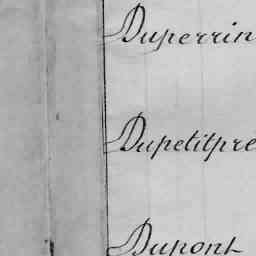 Duperrin
Dupetitpre
Dupont